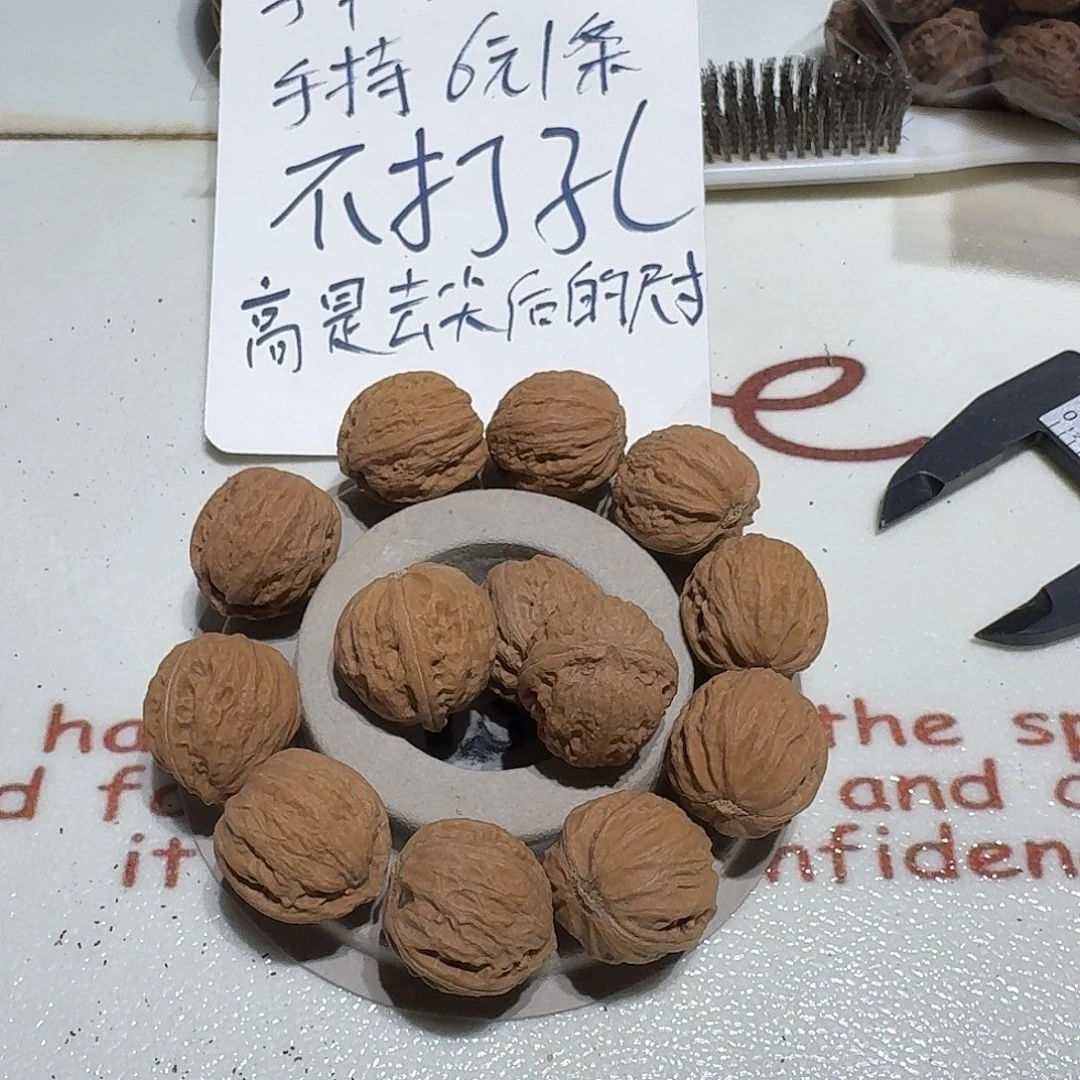 手持 6元1条
不打孔
高是去尖后的尺寸
e
ha the sp
d f and
it nfiden
0